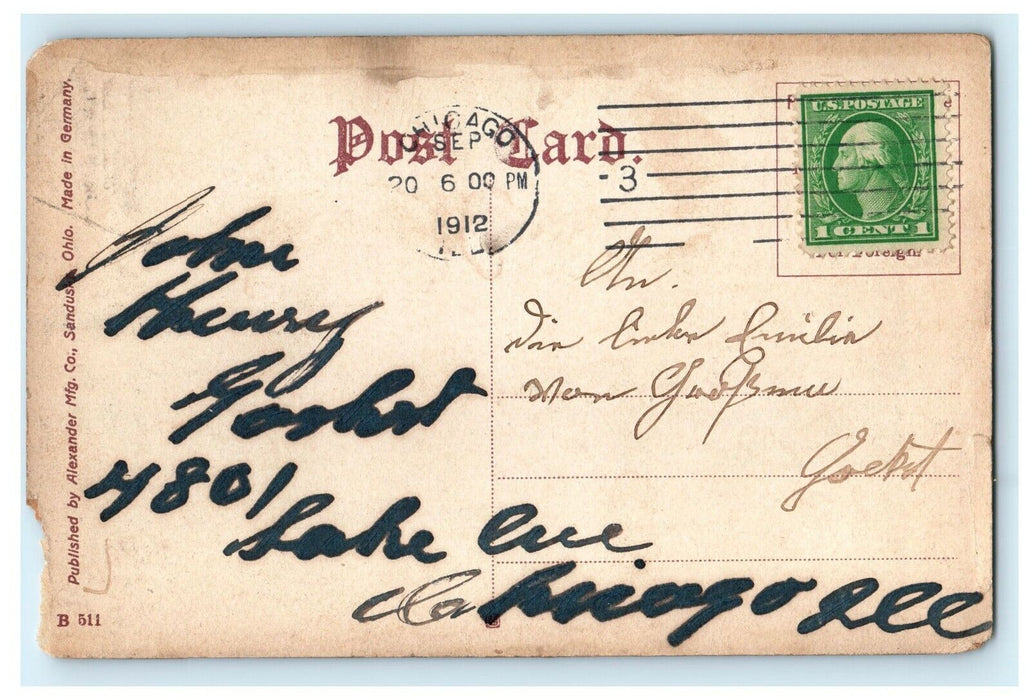 Post Card.
CHICAGO
SEP
20 6 00 PM
1912
ILL.
3
U.S. POSTAGE
1 CENT 1
For Foreign.
John
Henry
4801
Lake Ave
Chicago Ill
An.
Die liebe Emilie
von
Published by Alexander Mfg. Co., Sandusky, Ohio. Made in Germany.
B 511